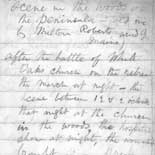 Scene in the woods on
the Peninsula — told me
by Milton Roberts and
after the battle of White
Oaks church on the retreat
the march at night — the
scene between 12 & 2 o'clock
that night at the church
in the woods, the hospital
at night, the wounded